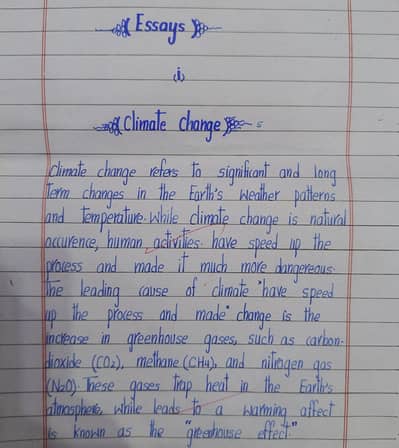 Essays
(i)
Climate change
Climate change refers to significant and long
term changes in the Earth's weather patterns
and temperature. While climate change is natural
accurence, human activities. have speed up the
process and made it much more dangereous.
The leading cause of climate "have speed
up the process and made" change is the
increase in greenhouse gases, such as carbon-
dioxide (CO2), methane (CH4), and nitrogen gas
(N2O). These gases trap heat in the Earth's
atmosphere, while leads to a warming affect
is known as the "greenhouse effect"